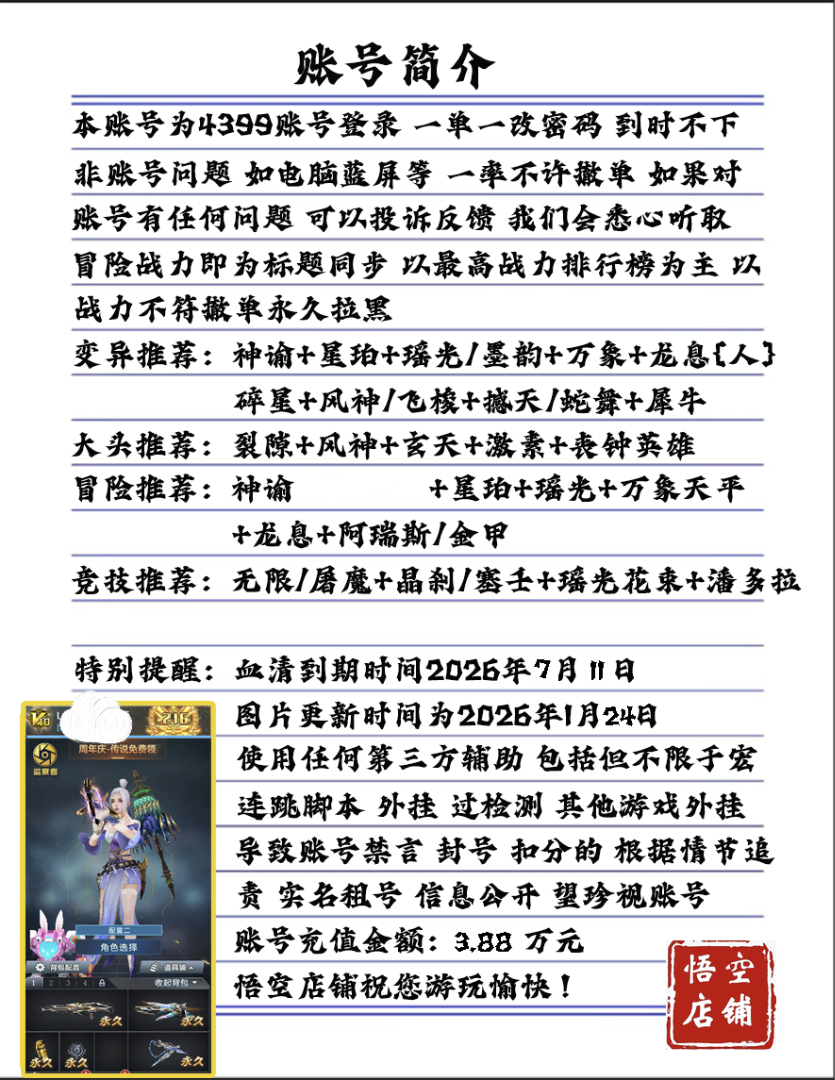 账号简介
本账号为4399账号登录 一单一改密码 到时不下
非账号问题 如电脑蓝屏等 一率不许撤单 如果对
账号有任何问题 可以投诉反馈 我们会悉心听取
冒险战力即为标题同步 以最高战力排行榜为主 以
战力不符撤单永久拉黑
变异推荐：神谕+星珀+瑶光/墨韵+万象+龙息{人}
碎星+风神/飞梭+撼天/蛇舞+犀牛
大头推荐：裂隙+风神+玄天+激素+丧钟英雄
冒险推荐：神谕 +星珀+瑶光+万象天平
+龙息+阿瑞斯/金甲
竞技推荐：无限/屠魔+晶刹/塞壬+瑶光花束+潘多拉
特别提醒：血清到期时间2026年7月11日
图片更新时间为2026年1月24日
使用任何第三方辅助 包括但不限于宏
连跳脚本 外挂 过检测 其他游戏外挂
导致账号禁言 封号 扣分的 根据情节追
责 实名租号 信息公开 望珍视账号
账号充值金额：3.88 万元
悟空店铺祝您游玩愉快！
V40
216
周年庆-传说免费领
监察者
配置二
角色选择
背包配置
道具袋
1 2 3 4
收起背包
永久
永久
永久
永久
永久
悟空
店铺